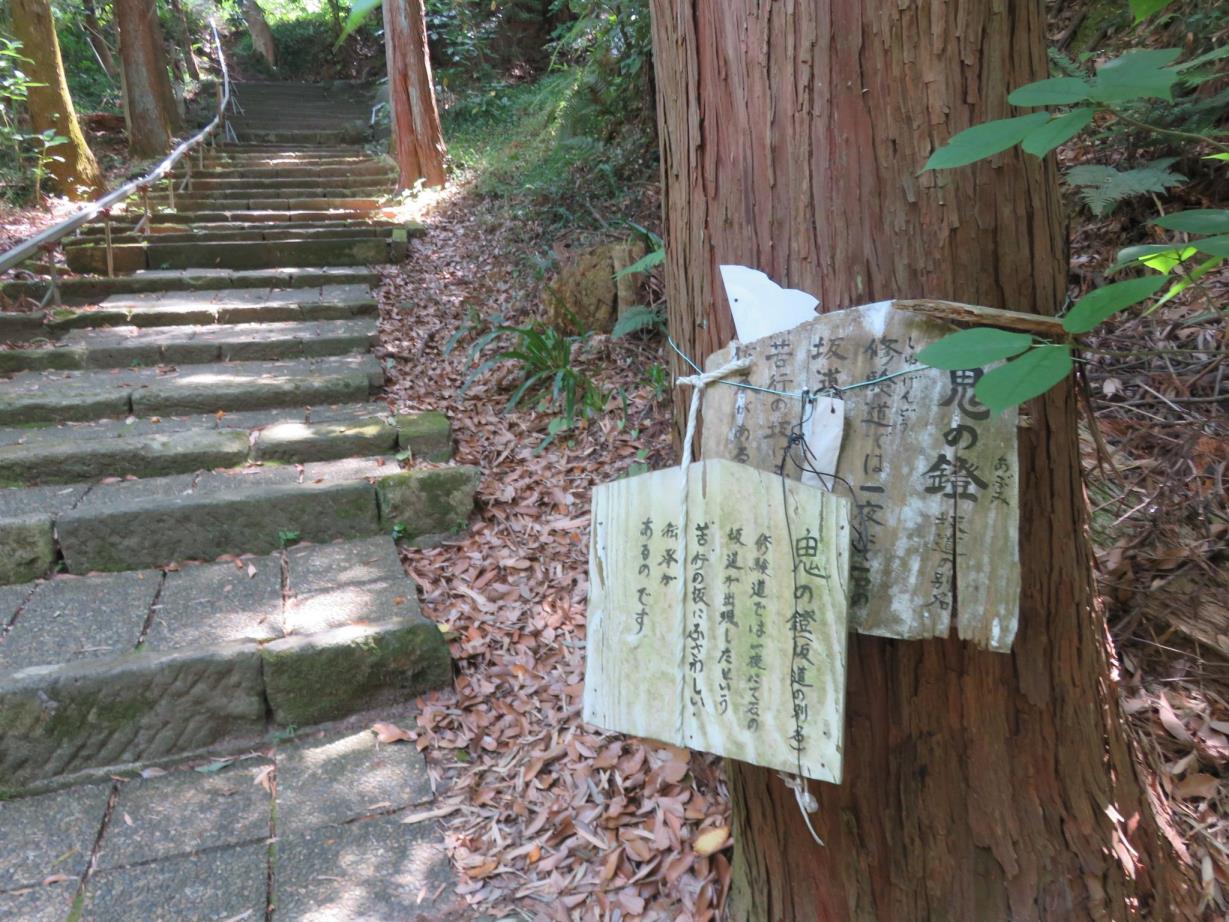 鬼の鐙(坂道の別名)
修験道では一夜にて石の
坂道が出現したという
苦行の坂にふさわしい
伝承が
あるのです
鬼の鐙
あぶみ
坂道の別名
しゅげんどう
修験道では一夜にて石の
坂道
苦行の坂
がある